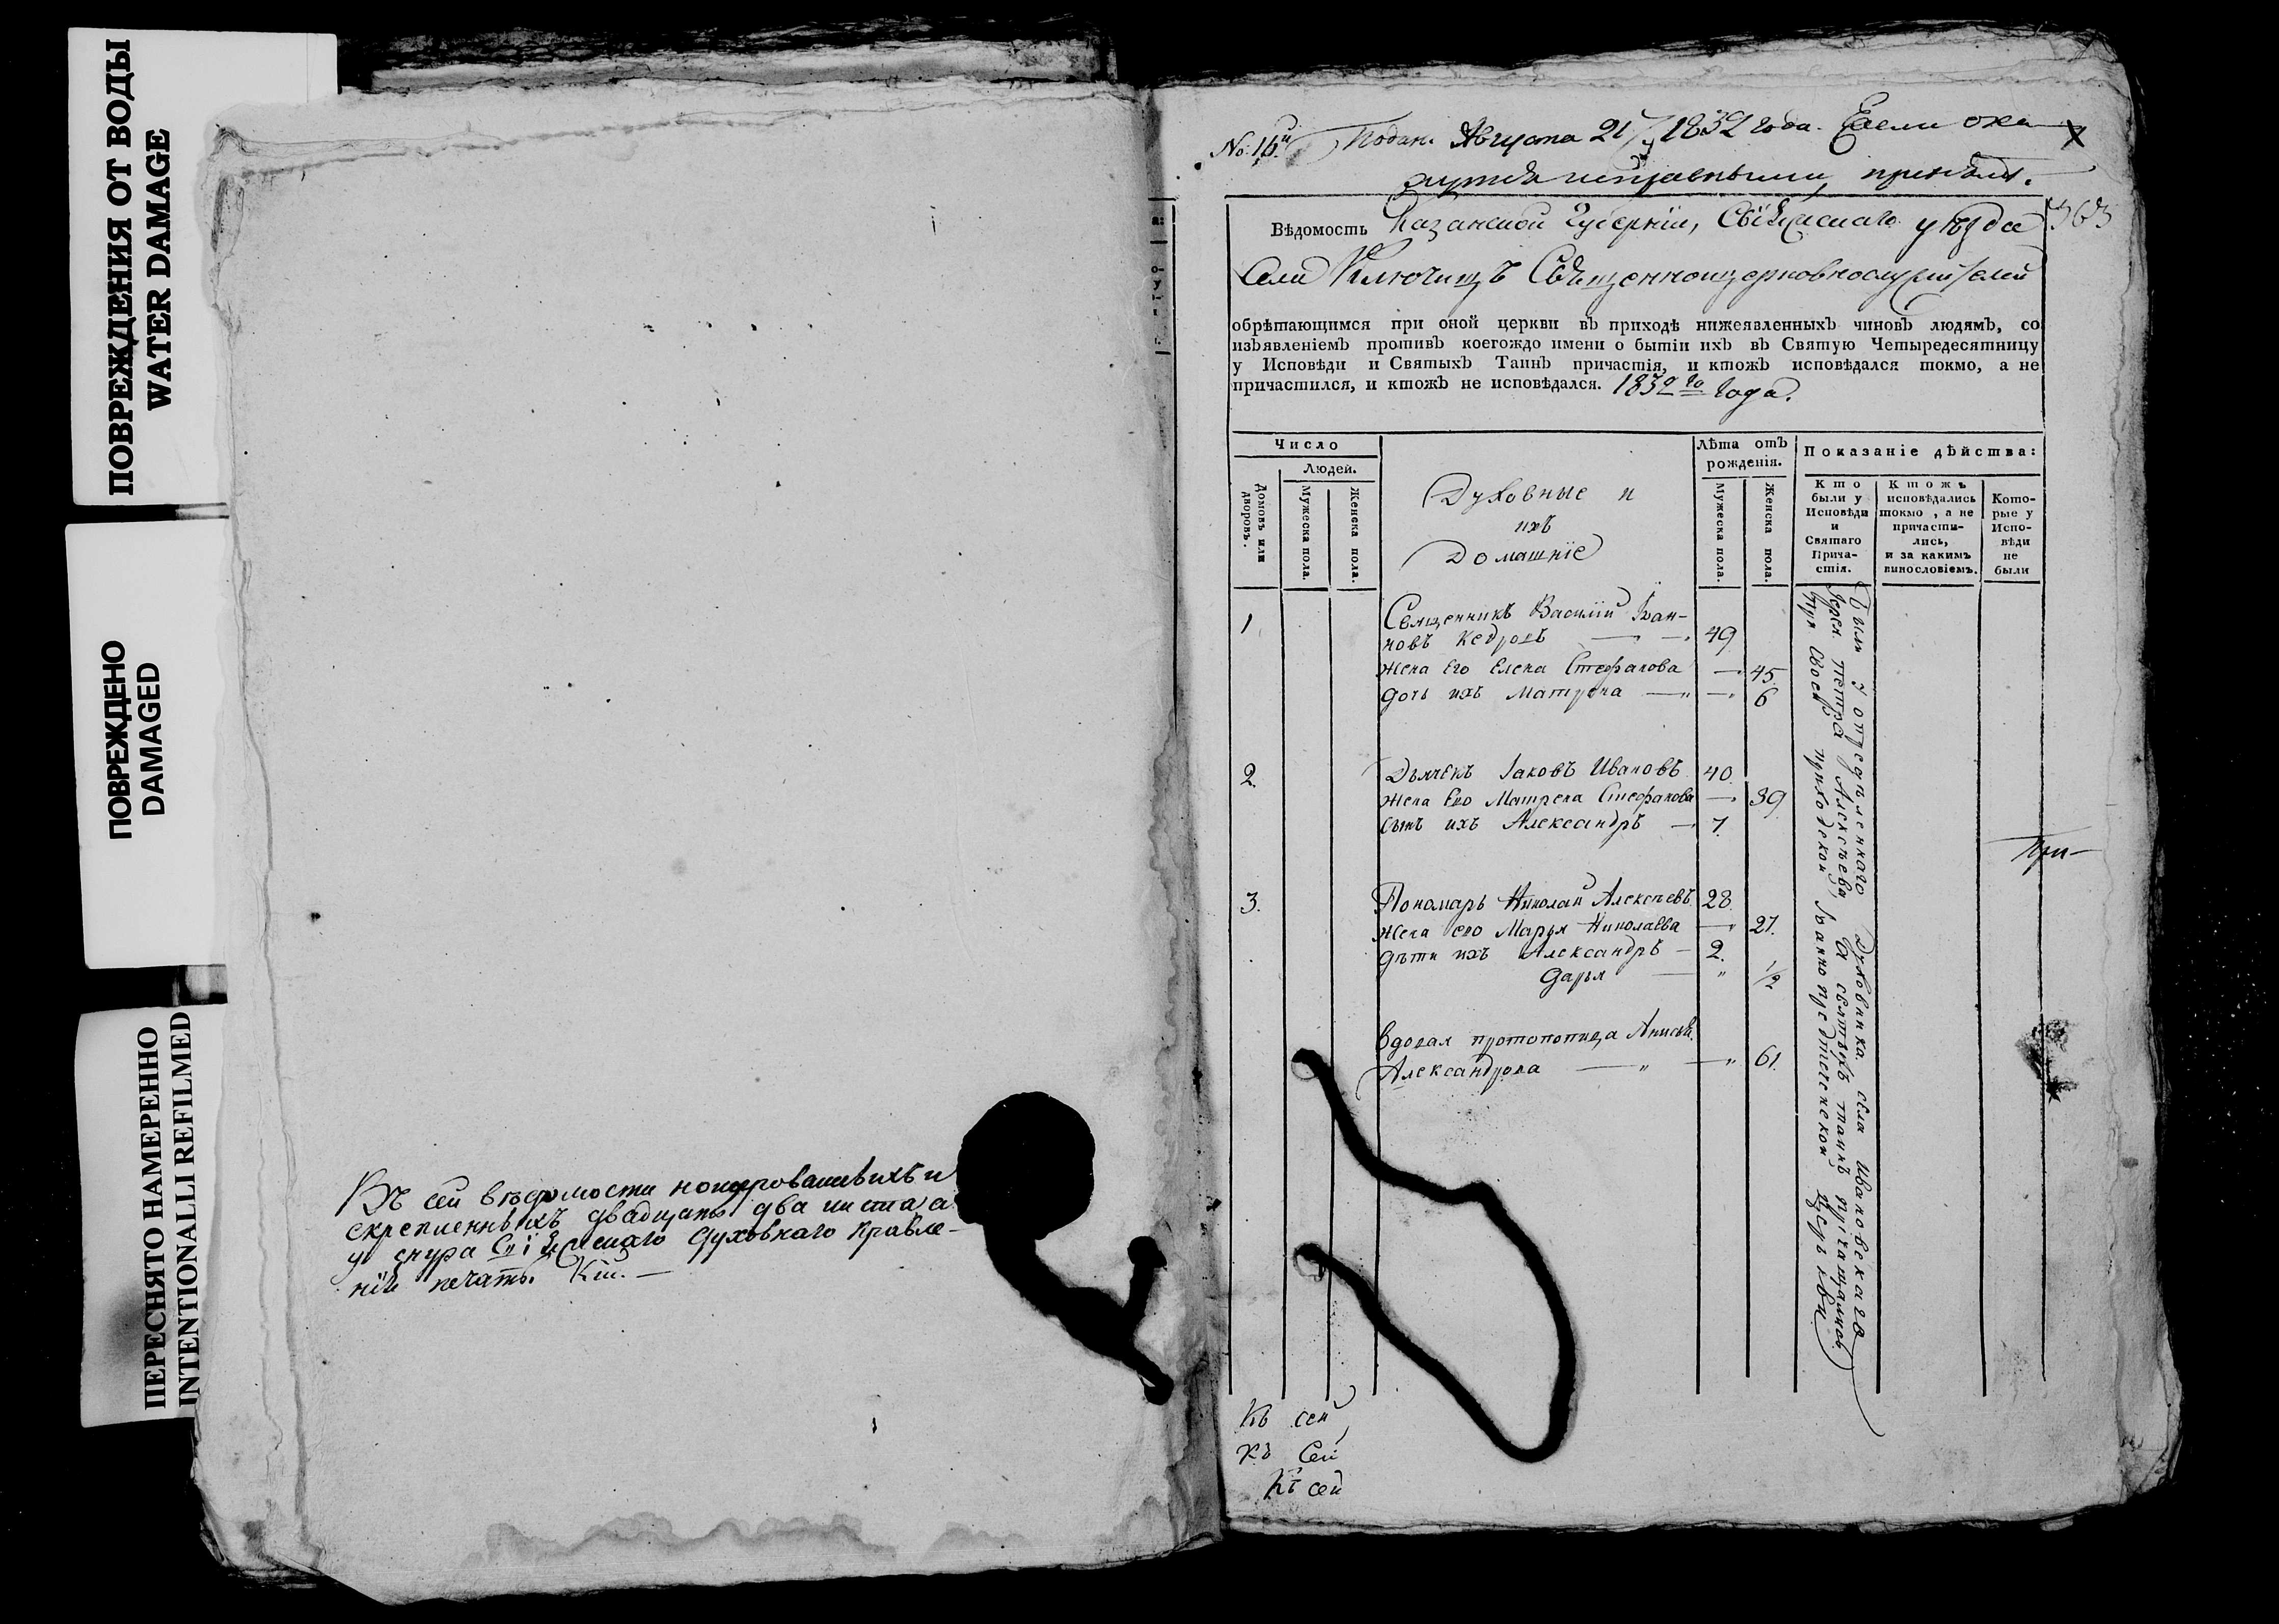 ПОВРЕЖДЕНИЯ ОТ ВОДЫ
WATER DAMAGE
ПОВРЕЖДЕНО
DAMAGED
ПЕРЕСНЯТО НАМЕРЕННО
INTENTIONALLI REFILMED
Въ сей ведомости
скрепленныхъ двадцать два листа а
у снура духовнаго Правле-
нія печать.
No. 16й Подан. Августа 21 1832 года. Если
исправными
Вѣдомость Казанской Губерніи, Свіяжскаго уѣзда
363
Села Ключищъ Священноцерковнослужителей
обрѣтающимся при оной церкви въ приходѣ нижеявленныхъ чиновъ людямъ, со
изъявленіемъ противъ коегождо имени о бытіи ихъ въ Святую Четыредесятницу
у Исповѣди и Святыхъ Таинъ причастія, и ктожъ исповѣдался токмо, а не
причастился, и ктожъ не исповѣдался. 1832го года.
Число
Людей.
Домовъ или дворовъ.
Мужеска пола.
Женска пола.
Духовные и
ихъ
Домашніе
Лѣта отъ
рожденія.
Мужеска пола.
Женска пола.
Показаніе дѣйства:
Кто
были у
Исповѣди
и
Святаго
Прича-
стія.
Ктожъ
исповѣдались
токмо, а не
причасти-
лись,
и за какимъ
винословіемъ.
Кото-
рые у
Испо-
вѣди
не
были
1 Священникъ Василій Іван-
новъ Кедровъ — 49
Жена Его Елена Стефанова — 45
дочь ихъ Матрона — 6
2. Дьячекъ Іаковъ Ивановъ 40
Жена Его Матрена Стефанова — 39
сынъ ихъ Александръ — 7
3. Пономарь Николай Алексѣевъ 28
Жена его Марья Николаева — 27.
дѣти ихъ Александръ — 2.
Дарья — " 1/2
вдовая протопопица Анисья
Александрова — " — " 61.
Были у опредѣленнаго Духовника села Ивановскаго
Іерея Петра Алексѣева и святыхъ таинъ причащались
при своей приходской Іоанно предтеченской церкви
При-
Къ сей
Къ Сей
Къ сей